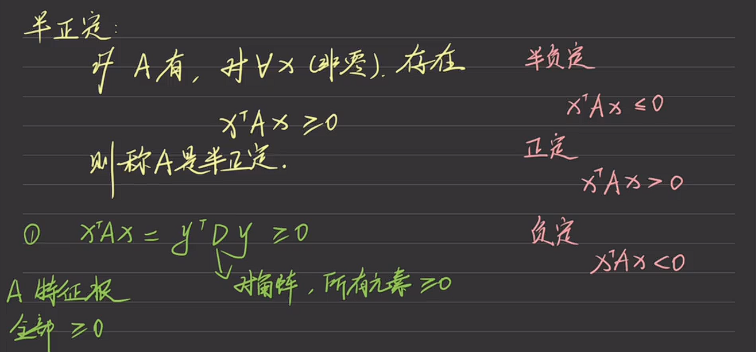 半正定:
对 A 有, 对 ∀x (非零). 存在
xᵀAx ≥ 0
则称A是半正定.
半负定
xᵀAx ≤ 0
正定
xᵀAx > 0
负定
xᵀAx < 0
① xᵀAx = yᵀDy ≥ 0
对角阵, 所有元素 ≥ 0
A 特征根
全部 ≥ 0